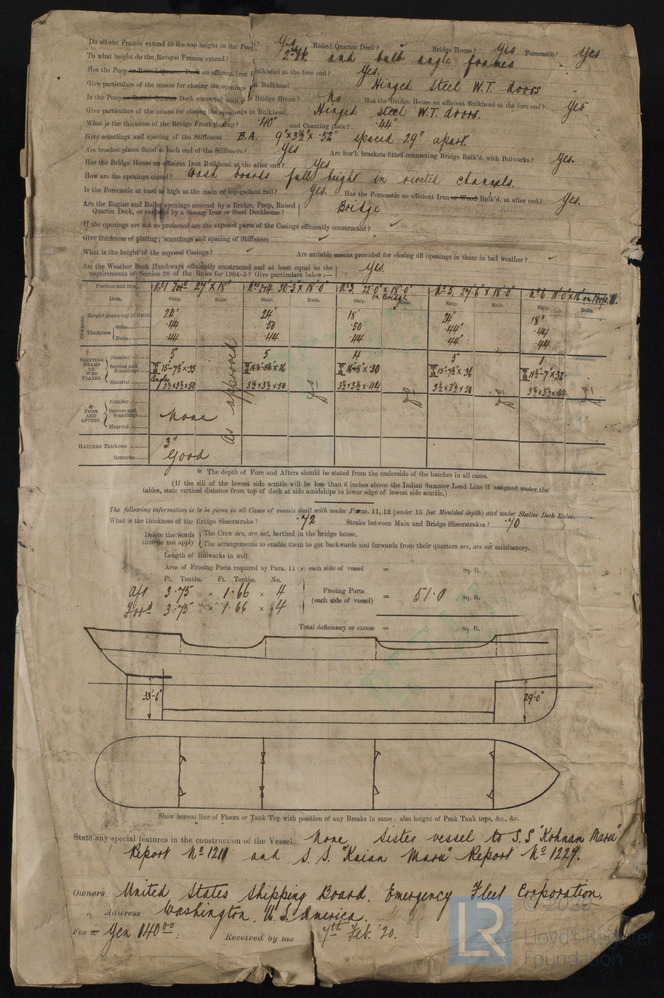 Do all the Frames extend to the top height in the Poop? Yes Raised Quarter Deck? Bridge House? Yes Forecastle? Yes
To what height do the Reverse Frames extend? 2nd dk and bulb angle frames
Has the Poop or Raised Quarter Deck an efficient Iron Bulkhead at the fore end? Yes
Give particulars of the means for closing the openings in Bulkhead Hinged Steel W.T. doors
Is the Poop or Raised Quarter Deck connected with a Bridge House? No Has the Bridge House an efficient Bulkhead at the fore end? Yes
Give particulars of the means for closing the openings in Bulkhead. Hinged Steel W.T. doors.
What is the thickness of the Bridge Front plating? .40" and Coaming plate? .44"
Give scantlings and spacing of the Stiffeners B.A. 9" x 3½ x .52" spaced 29" apart.
Are bracket plates fitted at each end of the Stiffeners? Yes Are hor'l. brackets fitted connecting Bridge Bulk'd. with Bulwarks? Yes.
Has the Bridge House an efficient Iron Bulkhead at the after end? Yes
How are the openings closed? Wash boards full height in riveted channels.
Is the Forecastle at least as high as the main or top-gallant rail? Yes. Has the Forecastle an efficient Iron or Wood Bulk'd. at after end? Yes.
Are the Engine and Boiler openings covered by a Bridge, Poop, Raised Quarter Deck, or enclosed by a Strong Iron or Steel Deckhouse? Bridge
If the openings are not so protected are the exposed parts of the Casings efficiently constructed? ✓
Give thickness of plating; scantlings and spacing of Stiffeners ✓
What is the height of the exposed Casings? ✓ Are suitable means provided for closing all openings in them in bad weather? ✓
Are the Weather Deck Hatchways efficiently constructed and at least equal to the requirements of Section 28 of the Rules for 1904-5? Give particulars below:— Yes.
Position and Size No 1 For'd 27' x 18' No 2+4 30'3 x 18'0" No 3 22'0" x 18'0" in Bridge No 5, 27'6 x 18'0" No 6 11'0" x 16' on Poop
Item. Ship. Rule. Ship. Rule. Ship. Rule. Ship. Rule. Ship. Rule.
COAMINGS Height above top of Deck 24" 24" 18" 24" 18"
Thickness Sides .44 .50 .50 .44" .44
Ends .44 .44 .44 .44" .44
SHIFTING BEAMS OR WEB PLATES Number 5 5 4 5 1
Section and Scantlings
Material
FORE AND AFTERS Number
Section and Scantlings None
Material
as approved
HATCHES Thickness 3"
Remarks Good
* The depth of Fore and Afters should be stated from the underside of the hatches in all cases.
(If the sill of the lowest side scuttle will be less than 6 inches above the Indian Summer Load Line if assigned under the
tables, state vertical distance from top of deck at side amidships to lower edge of lowest side scuttle.)
The following information is to be given in all Cases of vessels dealt with under Paras. 11, 12 (under 15 feet Moulded depth) and under Shelter Deck Rules.
What is the thickness of the Bridge Sheerstrake? .72 Strake between Main and Bridge Sheerstrakes? .70
Delete the words that do not apply The Crew are, are not, berthed in the bridge house.
The arrangements to enable them to get backwards and forwards from their quarters are, are not satisfactory.
Length of Bulwarks in well
Area of Freeing Ports required by Para. 11 (e) each side of vessel = Sq. ft.
Ft. Tenths. Ft. Tenths. No.
Aft 3.75 x 1.66 x 4
For'd 3.75 x 1.66 x 4
Freeing Ports (each side of vessel) = 51.0 Sq. ft.
Total deficiency or excess = Sq. ft.
33'-6"
29'-0"
Show hereon line of Floors or Tank Top with position of any Breaks in same; also height of Peak Tank tops, &c., &c.
State any special features in the construction of the Vessel None Sister vessel to S.S "Kohnan Maru"
Report No 1211 and S.S. "Kaian Maru" Report No 1229.
Owners United States Shipping Board, Emergency Fleet Corporation,
" Address Washington, U.S. America.
Fee Yen 140.00. Received by me 7th Feb. '20.
LR
Lloyd's Register
Foundation